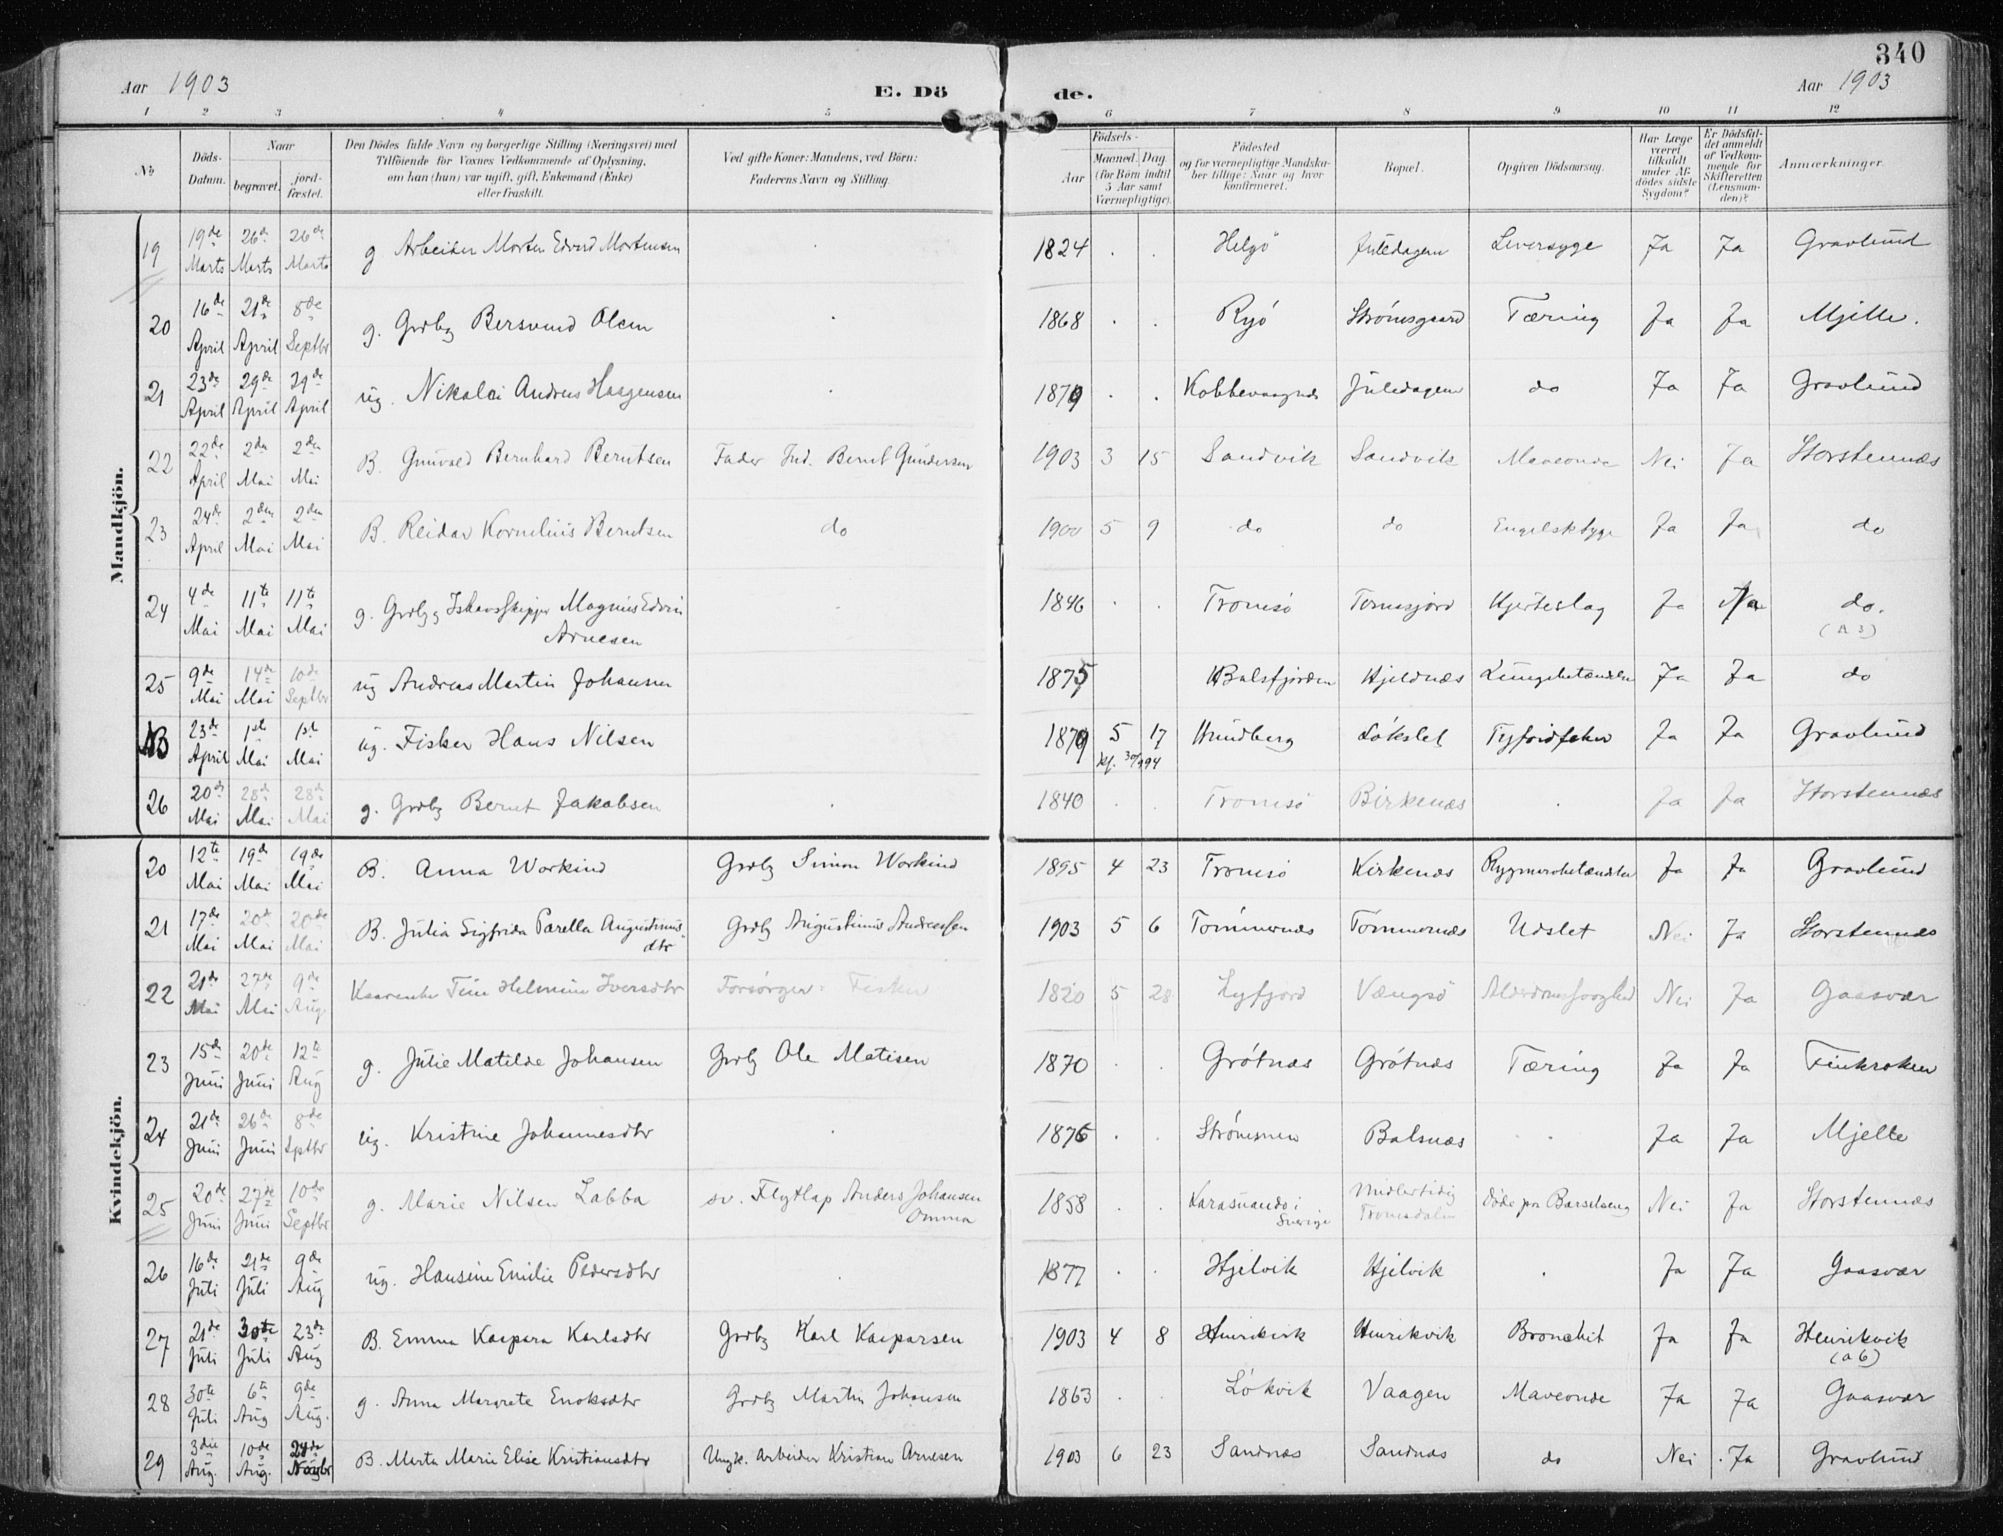 340
Aar 1903 E. Dö de. Aar 1903
1 2 3 4 5 6 7 8 9 10 11 12
No
Döds-Datum.
Naar
begravet.
jord-fæstet.
Den Dödes fulde Navn og borgerlige Stilling (Næringsvei) med
Tilföiende for Voxnes Vedkommende af Oplysning,
om han (hun) var ugift, gift, Enkemand (Enke)
eller fraskilt.
Ved gifte Koner: Mandens, ved Börn:
Faderens Navn og Stilling.
Födsels-
Aar
Maaned. Dag.
(for Börn indtil 5 Aar samt Værnepligtige).
Födested
og for værnepligtige Mandska-
ber tillige: Naar og hvor
konfirmeret.
Bopæl.
Opgiven Dödsaarsag.
Har Læge været tilkaldt under Af-dödes sidste Sygdom?
Er Dödsfal-det anmeldt af Vedkom-mende for Skifteretten (Lensman-den)?
Anmærkninger.
Mandkjön.
19 19de Marts 26de Marts 26de Marts g Arbeider Morten Edvard Mortensen 1824 . . Helgö Juledagen Leversyge Ja Ja Gravlund
20 16de April 21de April 8de Septbr g. Grdbg Bersvend Olsen 1868 . . Ryö Strömsgaard Tæring Ja Ja Mjelle.
21 23de April 29de April 29de April ug. Nikolai Andreas Haagensen 1879 . . Kobbevaagnes Juledagen do Ja Ja Gravlund
22 22de April 2den Mai 2den Mai B. Gunvald Bernhard Berntsen Fader Ind. Bernt Gundersen 1903 3 15 Sandvik Sandvik Maveonde Nei Ja Storstennæs
23 24de April 2den Mai 2den Mai B. Reidar Kornelius Berntsen do 1900 5 9 do do Engelsksyge Ja Ja do
24 4de Mai 11te Mai 11te Mai g. Grdbg Ishavsskipper Magnus Edvin Arnesen 1846 . . Tromsö Tomasjord Hjerteslag Ja do. (A 3)
25 9de Mai 14de Mai 10de Septbr ug Andreas Martin Johansen 1875 Balsfjorden Hjeldnæs Lungebetændelse Ja Ja do
NB 23de April 1ste Mai 1ste Mai ug. Fisker Hans Nilsen 1879 5 17 Hundberg Lökslet Tyfoidfeber Ja Ja Gravlund
kf. 30/9 94
26 20de Mai 28de Mai 28de Mai g. Grdbg Bernt Jakobsen 1840 . . Tromsö Birkenæs . Ja Ja Storstennæs
Kvindekjön.
20 12te Mai 19de Mai 19de Mai B. Anna Workind Grdbg Simon Workind 1895 4 23 Tromsö Kirkenæs Rygmarvsbetændelse Ja Ja Gravlund
21 17de Mai 20de Mai 20de Mai B. Julia Sigfrida Parella Augustinusdtr Grdbg Augustinus Andreassen 1903 5 6 Tömmernæs Tömmernæs Udslet Nei Ja Storstennæs
22 21de Mai 27de Mai 9de Aug. Tine Helmine Iversdtr Forsörger: Fisker 1820 5 28 Lyfjord Vængsö Alderdomssvaghed Nei Ja Gaasvær
23 15de Juni 20de Juni 12te Aug g. Julie Matilde Johansen Grdbg Ole Matisen 1870 . . Grötnæs Grötnæs Tæring Ja Ja Finkroken
24 21de Juni 26de Juni 8de Septbr ug. Kristine Johannesdtr . 1876 . . Strömmen Balsnæs . Ja Ja Mjelle
25 20de Juni 27de Juni 10de Septbr g. Marie Nilsen Labba sv. Flytlap Anders Johansen Omma 1858 . . Karasuando i Sverige Midlertidig Tromsdalen Döde paa Barselseng Nei Ja Storstennæs
26 16de Juli 21de Juli 9de Aug ug. Hansine Emilie Pedersdtr . 1877 . . Hjelvik Hjelvik . Ja Ja Gaasvær
27 21de Juli 30te Juli 23de Aug B. Emma Kaspara Karlsdtr Grdbg Karl Kasparsen 1903 4 8 Henrikvik Henrikvik Bronchit Ja Ja Henrikvik (a 6)
28 30te Juli 6te Aug 9de Aug. g. Anna Margrete Enoksdtr Grdbg Martin Johansen 1863 . . Lökvik Vaagen Maveonde Ja Ja Gaasvær
29 3die Aug. 10de Aug. Novbr B. Marta Marie Elise Kristiansdtr Ungk. Arbeider Kristian Arnesen 1903 6 23 Sandnæs Sandnæs do Nei Ja Gravlund